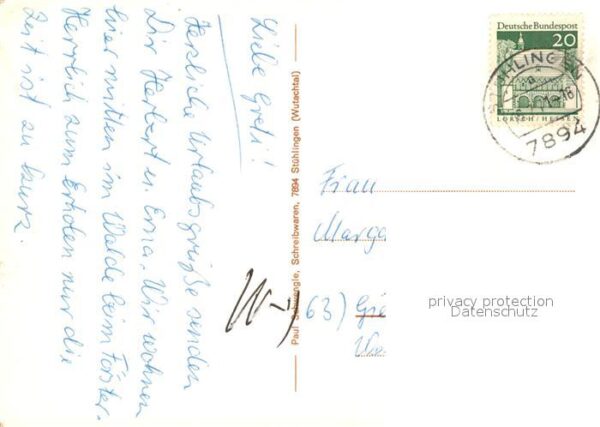 Liebe Greti!
Herzliche Urlaubsgrüße senden
Dir Herbert u. Erna. Wir wohnen
hier mitten im Walde beim Förster.
Herrlich zum Erholen nur die
Zeit ist zu kurz.
Paul Schwengle, Schreibwaren, 7894 Stühlingen (Wutachtal)
Deutsche Bundespost
20
LORSCH / HESSEN
STÜHLINGEN
7894
Frau
Marga
(63) Gie
privacy protection
Datenschutz